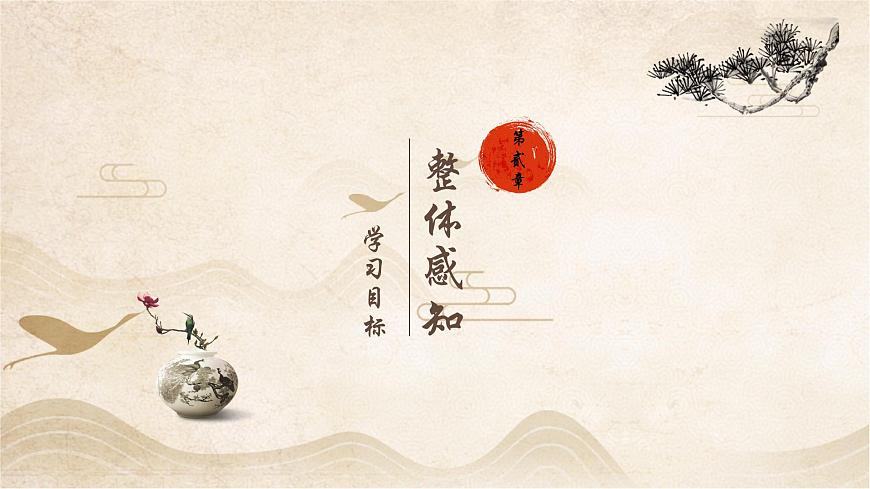 第贰章
整体感知
学习目标